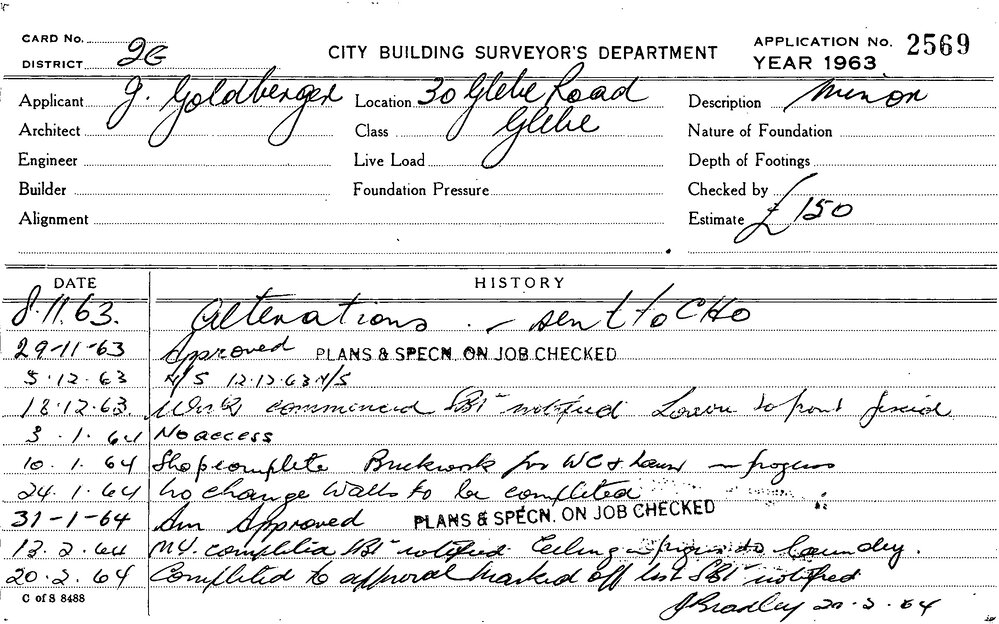 CARD No.
DISTRICT 2G
CITY BUILDING SURVEYOR'S DEPARTMENT
APPLICATION No. 2569
YEAR 1963
Applicant J. Goldberger
Location 30 Glebe Road
Glebe
Description Minor
Architect
Class
Nature of Foundation
Engineer
Live Load
Depth of Footings
Builder
Foundation Pressure
Checked by
Alignment
Estimate £150
DATE HISTORY
8.11.63. Alterations. - sent to CHO
29-11-63 Approved PLANS & SPECN. ON JOB CHECKED
5.12.63 N/S 12.12.63 N/S
18.12.63. Work commenced notified to front
3.1.64 No access
10.1.64 Shop complete Brickwork for WC & progress
24.1.64 No change Walls to be completed
31-1-64 Am Approved PLANS & SPECN. ON JOB CHECKED
13.2.64 notified. Ceiling to laundry.
20.2.64 Completed to approval marked off list notified
J Bradley 20.2.64
C of S 8488